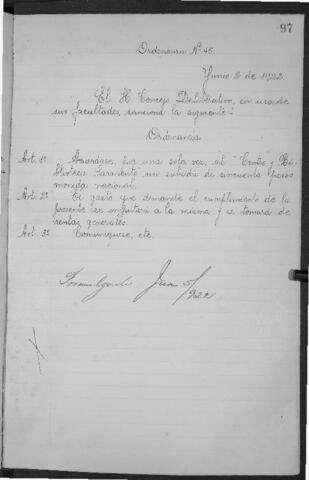 97
Ordenanza Nº 46
Junio 2 de 1922
El H Concejo Deliberativo, en uso de
sus facultades, sanciona la siguiente:
Ordenanza
Art. 1º Acuérdase, por una sola vez, al "Centro y Bi-
blioteca Sarmiento un subsidio de cincuenta pesos
moneda nacional.
Art. 2º El gasto que demande el cumplimiento de la
presente se imputará a la misma y se tomará de
rentas generales.
Art. 3º Comuníquese, etc.
Promulgada Junio 5/
922